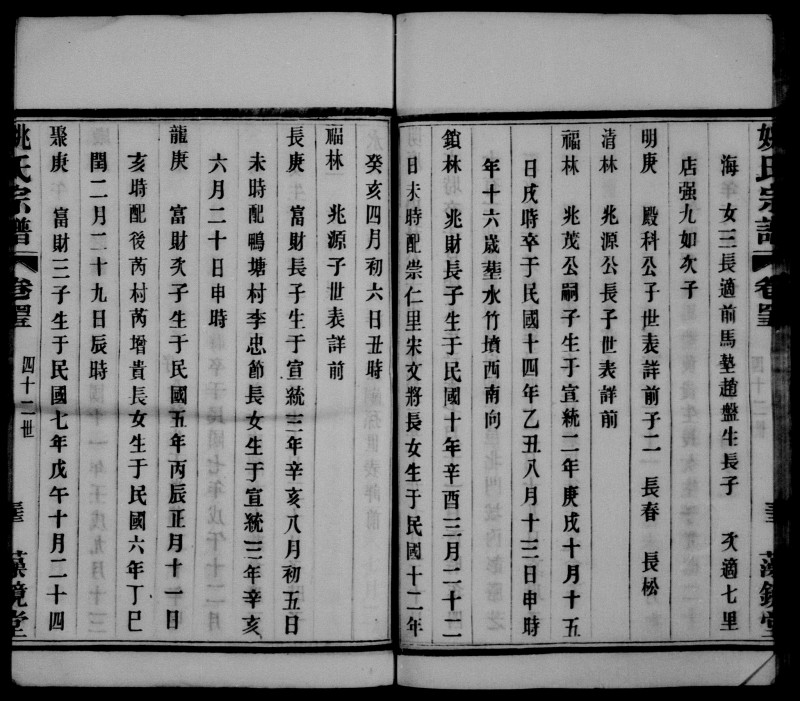 姚氏宗譜 卷
海年 女三長適前馬墊趙盤生長子 次適七里
店强九如次子
明庚 殿科公子世表詳前子二 長春 長松
清林 兆源公長子世表詳前
福林 兆茂公嗣子生于宣統二年庚戌十月十五
日戌時卒于民國十四年乙丑八月十三日申時
年十六歲葬水竹墳西南向
鎖林 兆財長子生于民國十年辛酉三月二十二
日未時配崇仁里宋文將長女生于民國十二年
癸亥四月初六日丑時
福林 兆源子世表詳前
長庚 富財長子生于宣統三年辛亥八月初五日
未時配鴨塘村李忠節長女生于宣統三年辛亥
六月二十日申時
龍庚 富財次子生于民國五年丙辰正月十一日
亥時配後芮村芮增貴長女生于民國六年丁巳
閏二月二十九日辰時
聚庚 富財三子生于民國七年戊午十月二十四
姚氏宗譜 卷 四十二世 藻鏡堂